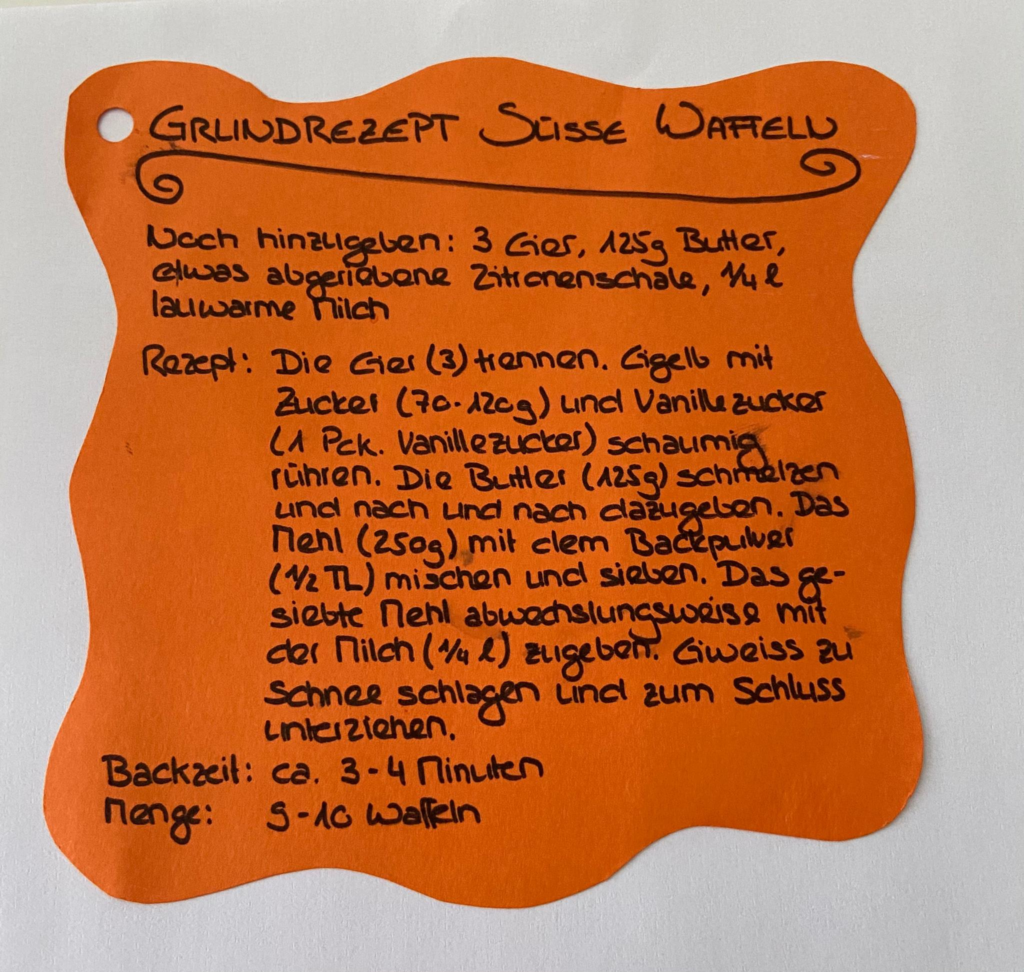 GRUNDREZEPT SÜSSE WAFFELN
Noch hinzugeben: 3 Eier, 125g Butter,
etwas abgeriebene Zitronenschale, 1/4 l
lauwarme Milch
Rezept: Die Eier (3) trennen. Eigelb mit
Zucker (70-120g) und Vanillezucker
(1 Pck. Vanillezucker) schaumig
rühren. Die Butter (125g) schmelzen
und nach und nach dazugeben. Das
Mehl (250g) mit dem Backpulver
(1/2 TL) mischen und sieben. Das ge-
siebte Mehl abwechslungsweise mit
der Milch (1/4 l) zugeben. Eiweiss zu
Schnee schlagen und zum Schluss
unterziehen.
Backzeit: ca. 3-4 Minuten
Menge: 9-10 Waffeln